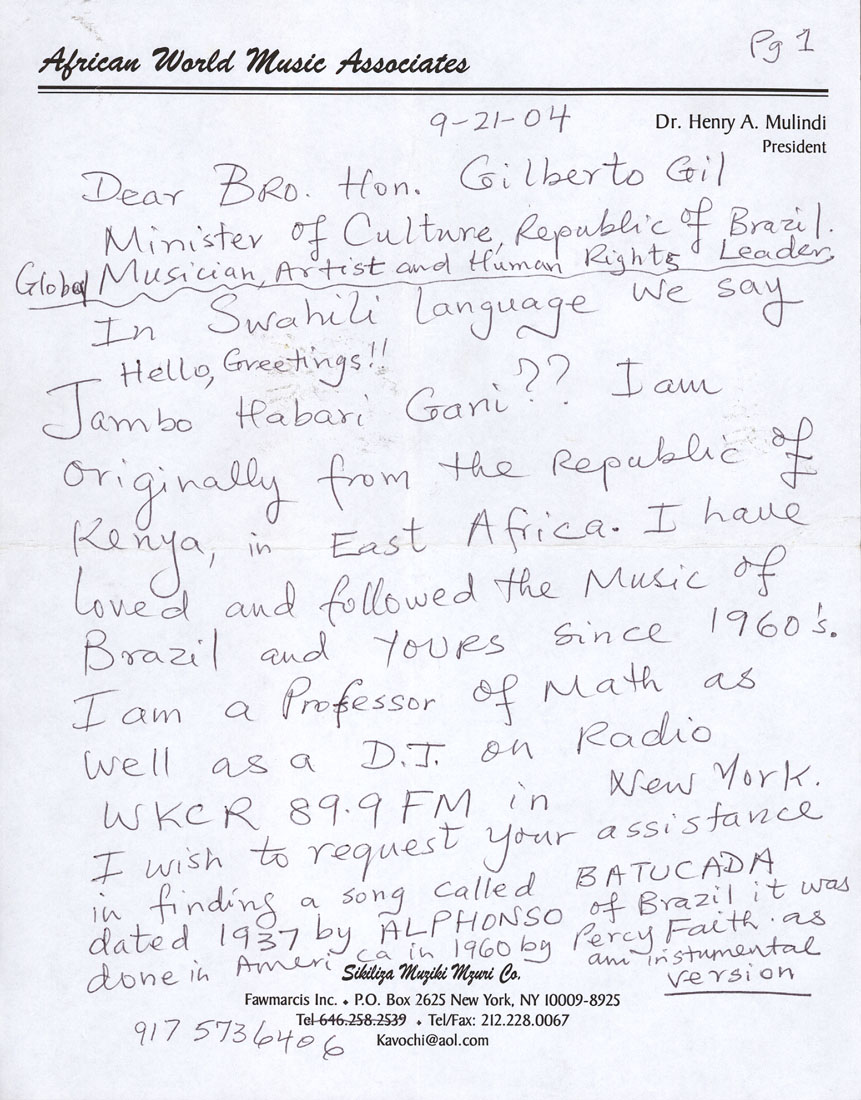 Pg 1
African World Music Associates
9-21-04
Dr. Henry A. Mulindi
President
Dear BRO. Hon. Gilberto Gil
Minister of Culture, Republic of Brazil.
Global Musician, Artist and Human Rights Leader,
In Swahili language we say
Hello, Greetings!!
Jambo Habari Gani?? I am
originally from the Republic of
Kenya, in East Africa. I have
loved and followed the Music of
Brazil and YOURS since 1960's.
I am a Professor of Math as
well as a D.J. on Radio
WKCR 89.9 FM in New York.
I wish to request your assistance
in finding a song called BATUCADA
dated 1937 by ALPHONSO of Brazil it was
done in America in 1960 by Percy Faith. as
am instumental
version
Sikiliza Muziki Mzuri Co.
Fawmarcis Inc. ♦ P.O. Box 2625 New York, NY 10009-8925
Tel 646.258.2539 ♦ Tel/Fax: 212.228.0067
917 5736406
Kavochi@aol.com